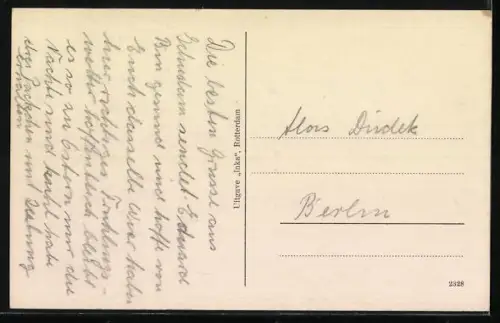 Die besten Grüsse aus
Schiedam sendet Eduard
Bin gesund und hoffe von
Euch dasselbe Wir haben
hier richtiges Frühlings-
wetter hoffentlich bleibt
es so zu Ostern nur die
Nächte sind kalt habe
das Päckchen mit
erhalten
Uitgave „Jaka“, Rotterdam
Alois Dudek
Berlin
2328